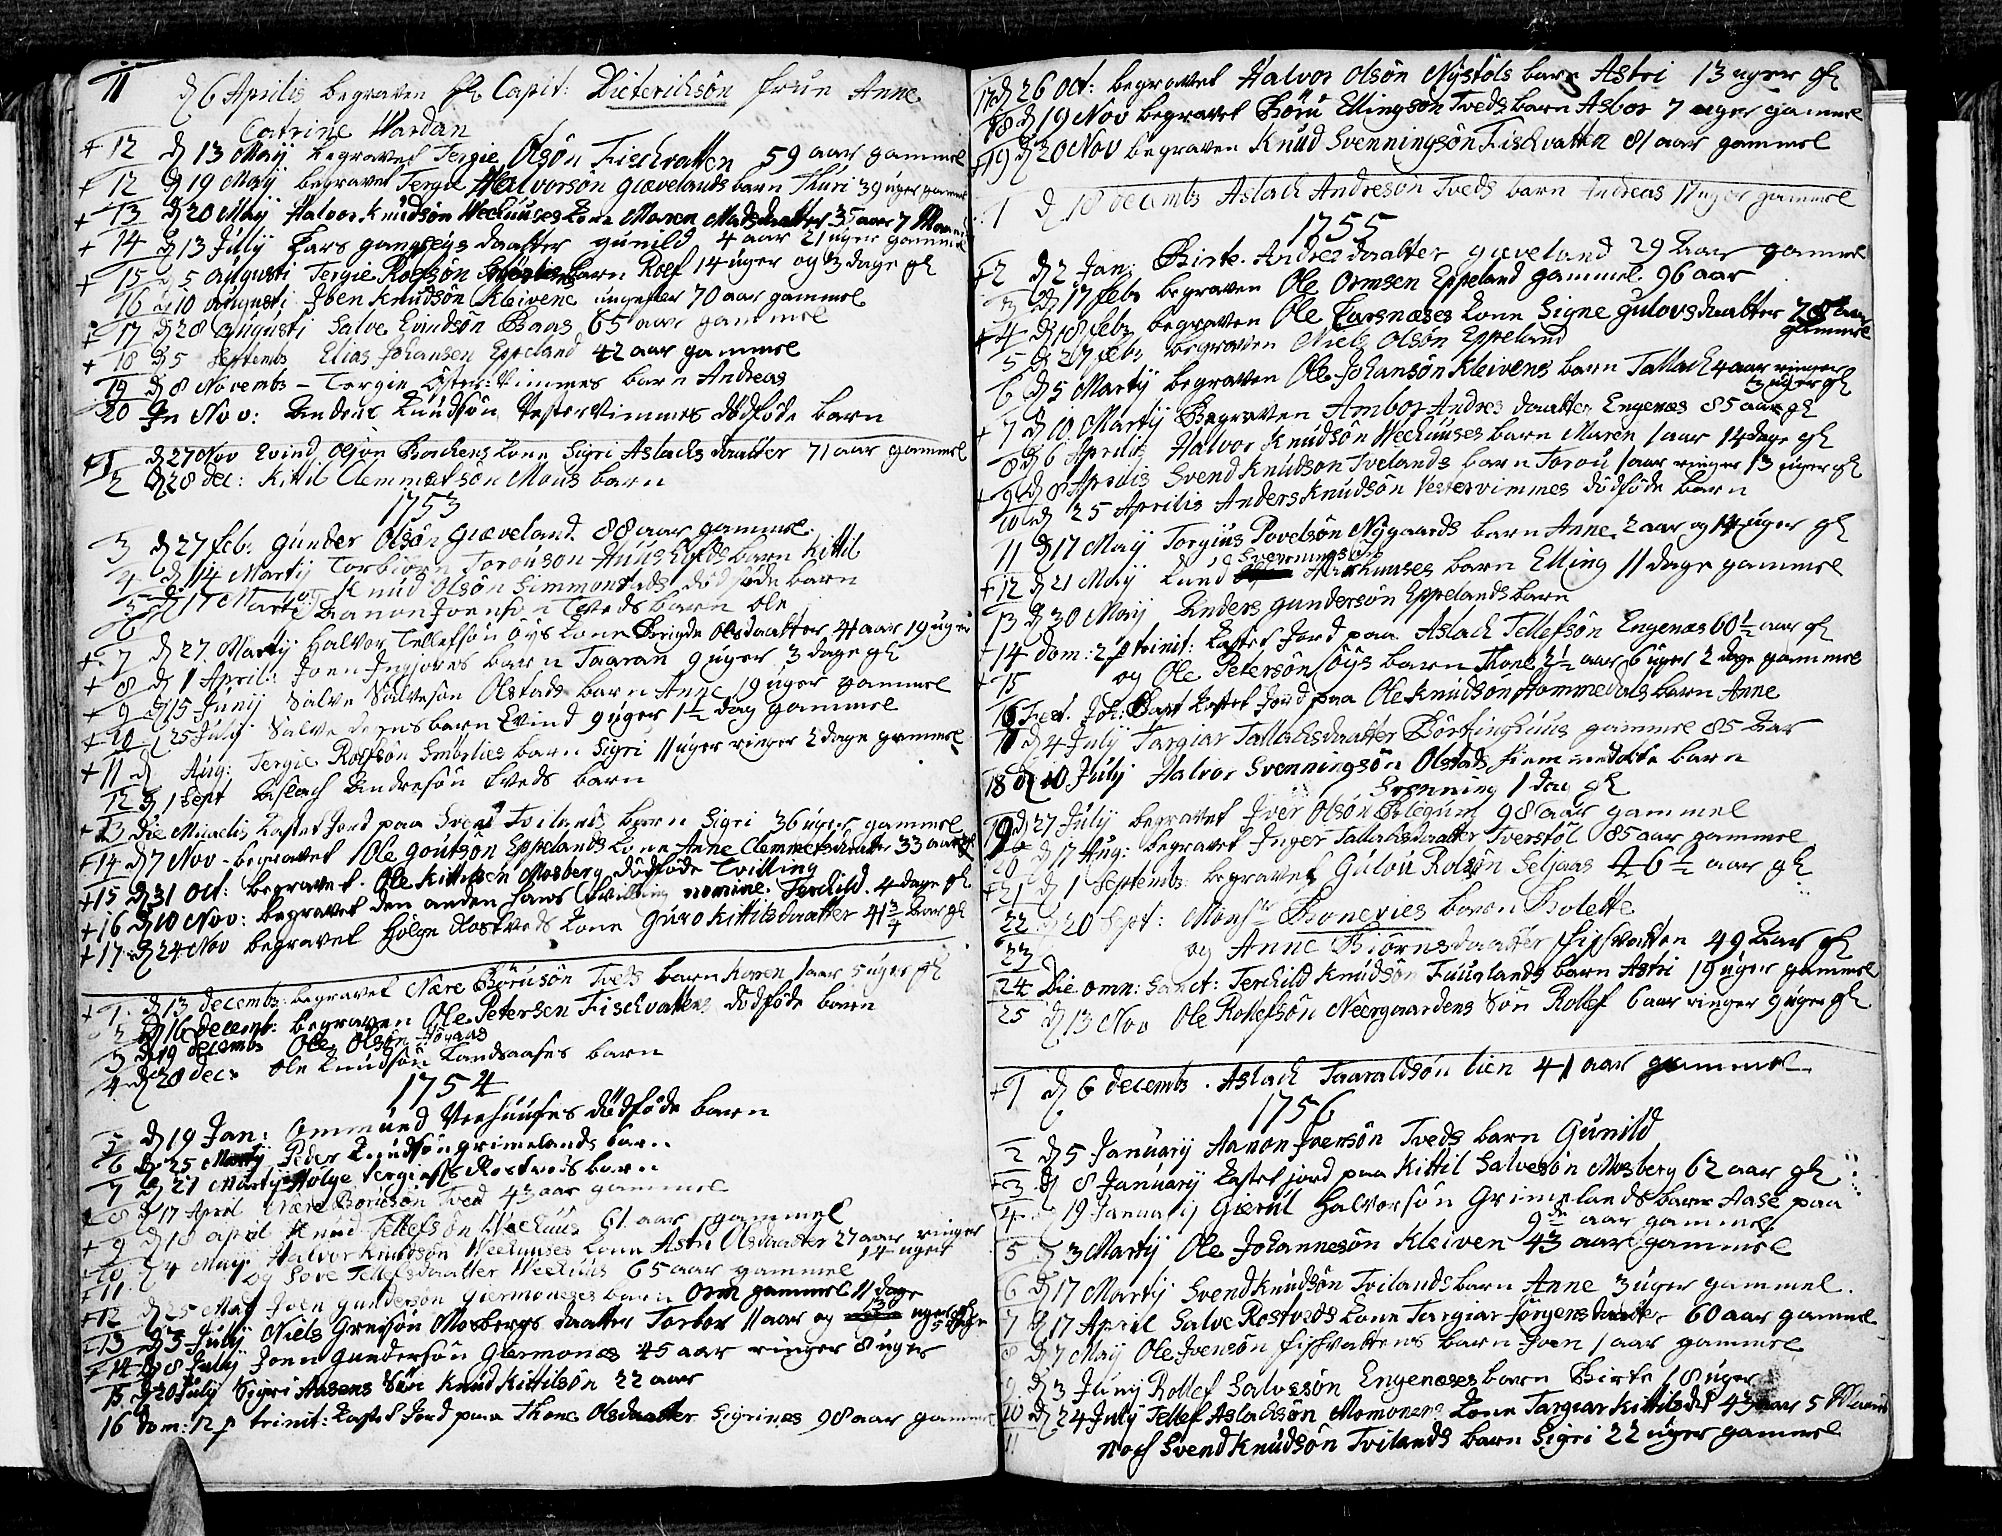 11 d 6 Aprilis begraven Hr Capit: Dieterichsön frue Anne
Catrine Hardan
+ 12 d 13 Maij begravet Tergie Olsön Fischvatten 59 aar gammel
+ 12 d 19 Maij begravet Tergie Halvorsön Gievelands barn Thuri 39 uger gammel
+ 13 d 20 Maij Halvor Knudsön Veehuuses Kone Maren Madsdaatter 35 aar 7 Maaned
+ 14 d 13 Julij Lars daatter Gunild 4 aar 21 uger gammel
+ 15 d 5 Augusti Tergie Rolfsön barn Rolf 14 uger og 3 dage gl
16 d 10 Augusti Iben Knudsön Kleivene ungefer 70 aar gammel
+ 17 d 28 Augusti Salve Evindsön Baas 65 aar gammel
+ 18 d 5 Septembr Elias Johansen Eppeland 42 aar gammel
19 d 8 Novembr - Tergie Öster:Vimmes barn Andreas
20 In Nov: Anders Knudsön Vestervimmes dödföde barn
+ 1 d 27 Nov Evind Olsön Kone Sigri Aslachsdaatter 71 aar gammel
2 d 28 Dec: Kittil Clemmetsön Mous barn
1753
3 d 27 Feb: Gunder Olsön Gieveland 88 aar gammel
4 d 14 Martij Torbiörn Torousön barn Kittil
5 d 17 Martij Knud Olsön Simmonstads dödföde barn
6 Aanon Joensön Tveds barn Ole
+ 7 d 27. Martij Halvor Tellefsön Öys Kone Brigde Olsdaatter 41 aar 19 uger
+ 8 d 1 April: Joen barn Taaran 9 uger 3 dage gl
+ 9 d 15 Junij Salve Salvesön Olstads barn Anne 19 uger gammel
+ 10 d 25 Julij Salve barn Evind 9 uger 1½ dag gammel
+ 11 d Aug: Tergie Rolfsön barn Sigri 11 uger ringer 2 dage gammel
12 d 1 Sept Aslach Andresön Tveds barn
+ 13 Die Michaelis Kastet Jord paa Svend Tvilands barn Sigri 36 uger gammel
+ 14 d 7 Nov - begravet Ole Goutsön Eppelands Kone Anne Clemmetsdaatter 33 aar gl
+ 15 d 31 Oct: begravet Ole Kittilsen Mosberg dödföde Tvilling
+ 16 d 10 Nov: begravet den anden hans Tvilling nomine Terkild. 4 dage gl
+ 17 d 24 Nov begravet Hölge Rostveds Kone Guro Kittilsdaatter 41¾ Aar gl
+ 1. d 13 Decembr: begravet Nere Börusön Tveds barn Karen 1 aar 5 uger gl
2 d 16 Decemb: begraven Ole Petersen Fischvattens dödföde barn
3 d 19 Decembr Ole Olsön
4. d 28 Dec: Ole Knudsön Landsaases barn
1754
5 d 19 Jan: Ommund Veehuuses dödföde barn
6 d 25 Martij Peder Knudsön Grimelands barn
7 d 21 Martij Hölge Tergiesön Rostveds barn
+ 8 d 17 April Nere Börusön Tved 43 aar gammel
+ 9 d 18 April Knud Tellefsön Veehuus 61 aar gammel
+ 10. d 4 Maij Halvor Knudsön Veehuuses Kone Astri Olsdaatter 27 aar ringer
14 uger
+ 11 og Tove Tellefsdaatter Veehuus 65 aar gammel
+ 12 d 25 Maij Joen Gundersön Giermoneses barn Orm gammel 11 dage
+ 13 d 3 Julij Niels Greisön Mosbergs daatter Torbor 11 aar og 13 uger
+ 14 d 8 Julij Joen Gundersön Giermones 45 aar ringer 8 uger
15 d 20 Julij Sigri Aasens Sön Knud Kittilsön 22 aar
16 Dom: 12 p trinit: Kastet Jord paa Thone Olsdaatter Sigrines 98 aar gammel
17 d 26 Oct: begravet Halvor Olsön Nystöls barn Astri 13 uger gl
18 d 19 Nov begravet Böru Ellingsön Tveds barn Asbor 7 uger gammel
+ 19 d 30 Nov begraven Knud Svenningsön Fischvatten 81 aar gammel
1 d 18 Decembr Aslach Andresön Tveds barn Andreas 17 uger gammel
1755
+ 2 d 2 Jan: Birte Andresdaatter Gieveland 29 Aar gammel
3 d 17 Feb: begraven Ole Ormsen Eppeland gammel 96 aar
+ 4 d 18 Feb: begraven Ole Larsneses Kone Signe Gulovsdaatter 78 aar
gammel
5 d 27 Feb: begraven Niels Olsön Eppeland
6 d 5 Martij begraven Ole Johansön Kleivens barn Tallach 4 aar ringer
3 uger gl
+ 7 d 10 Martij Begraven Ambor Andresdaatter Engenes 85 aar gl
8 d 6 Aprilis Halvor Knudsön Veehuuses barn Maren 1 aar 14 dage gl
+ 9 d 8 Aprilis Svend Knudson Tvelands barn Torou 1 aar ringer 13 uger gl
10 d 25 Aprilis Anders Knudsön Vestervimmes dödföde barn
11 d 17 Maij Torgius Povelsön Nygaards barn Anne 2 aar og 14 uger gl
Svenningsön
+ 12 d 21 Maij Knud barn Elling 11 dage gammel
13 d 30 Maij Anders Gundersön Eppelands barn
+ 14 Dom: 2 p trinit: Kastet Jord paa Aslach Tellefsön Engenes 60½ aar gl
+ 15 og Ole Petersön Öys barn Thone 2½ aar 6 uger 2 dage gammel
16 Fest. Joh: Bapt Kastet Jord paa Ole Knudsön Hommedals barn Anne
17 d 4 Julij Targiar Tallachsdaatter gammel 85 Aar
18 d 10 Julij Halvor Svenningsön Olstads hiemmedöbte barn
Svenning 1 dag gl
19 d 27 Julij begravet Iver Olsön 98 aar gammel
20 d 17 Aug: begravet Inger Tallachsdaatter Tverstöl 85 aar gammel
+ 21 d 1 Septembr: begravet Gulou Rolsön Seljaas 46½ aar gl
22 d 20 Sept: Monsr Bonevies barn Bolette
23 og Anne Biörnsdaatter Fischvatten 49 Aar gl
24 Die omn: Sanct: Terkild Knudsön Fuuglands barn Astri 19 uger gammel
25 d 13 Nov Ole Rollefsön Neergaardens Sön Rollef 6 aar ringer 9 uger gl
+ 1 d 6 Decembr. Aslach Taaraldsön Lien 41 aar gammel
1756
2 d 5 Januarij Aanon Iversön Tveds barn Gunild
+ 3 d 8 Januarij Kastet jord paa Kittil Salvesön Mosberg 62 aar gl
4 d 19 Januarij Gierul Halvorsön Grimelands barn Aase paa
9de aar gammel
5 d 3 Martij Ole Johannesön Kleiven 43 aar gammel
6 d 17 Martij Svend Knudsön Tvilands barn Anne 3 uger gammel.
7 d 17 April Salve Rostveds Kone Targiar Jörgensdaatter 60 aar gammel
8 d 7 Maij Ole Jvensön Fischvattens barn Iven 1 aar gammel
9 d 3 Junij Rollef Salvesön Engeneses barn Birte 18 uger
10 d 24 Julij Tellef Aslachsön Momones Kone Targiar Kittilsdr 43 aar 5 Maaned
11 noch Svend Knudsön Tvilands barn Sigri 22 uger gammel